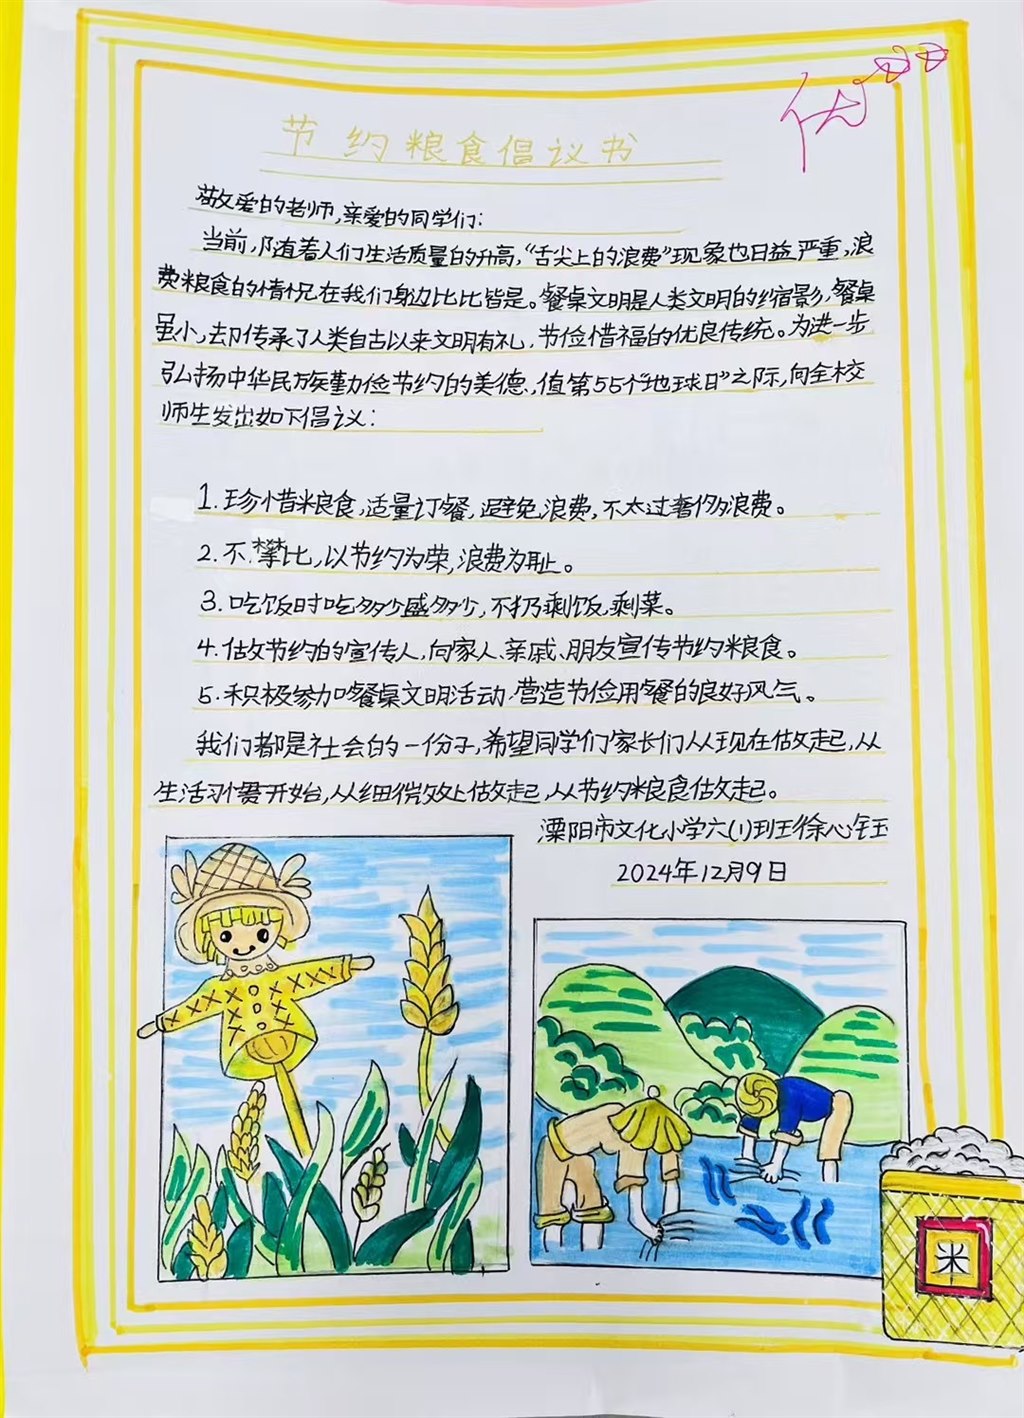 优
节约粮食倡议书
敬爱的老师,亲爱的同学们:
当前,随着人们生活质量的升高,“舌尖上的浪费”现象也日益严重,浪
费粮食的情况在我们身边比比皆是。餐桌文明是人类文明的缩影,餐桌
虽小,却传承了人类自古以来文明有礼,节俭惜福的优良传统。为进一步
弘扬中华民族勤俭节约的美德,值第55个“地球日”之际,向全校
师生发出如下倡议:
1.珍惜粮食,适量订餐,避免浪费,不太过奢侈浪费。
2.不攀比,以节约为荣,浪费为耻。
3.吃饭时吃多少盛多少,不扔剩饭,剩菜。
4.做节约的宣传人,向家人、亲戚、朋友宣传节约粮食。
5.积极参加餐桌文明活动,营造节俭用餐的良好风气。
我们都是社会的一份子,希望同学们家长们从现在做起,从
生活习惯开始,从细微处做起,从节约粮食做起。
溧阳市文化小学六(1)班徐心钰
2024年12月9日
米